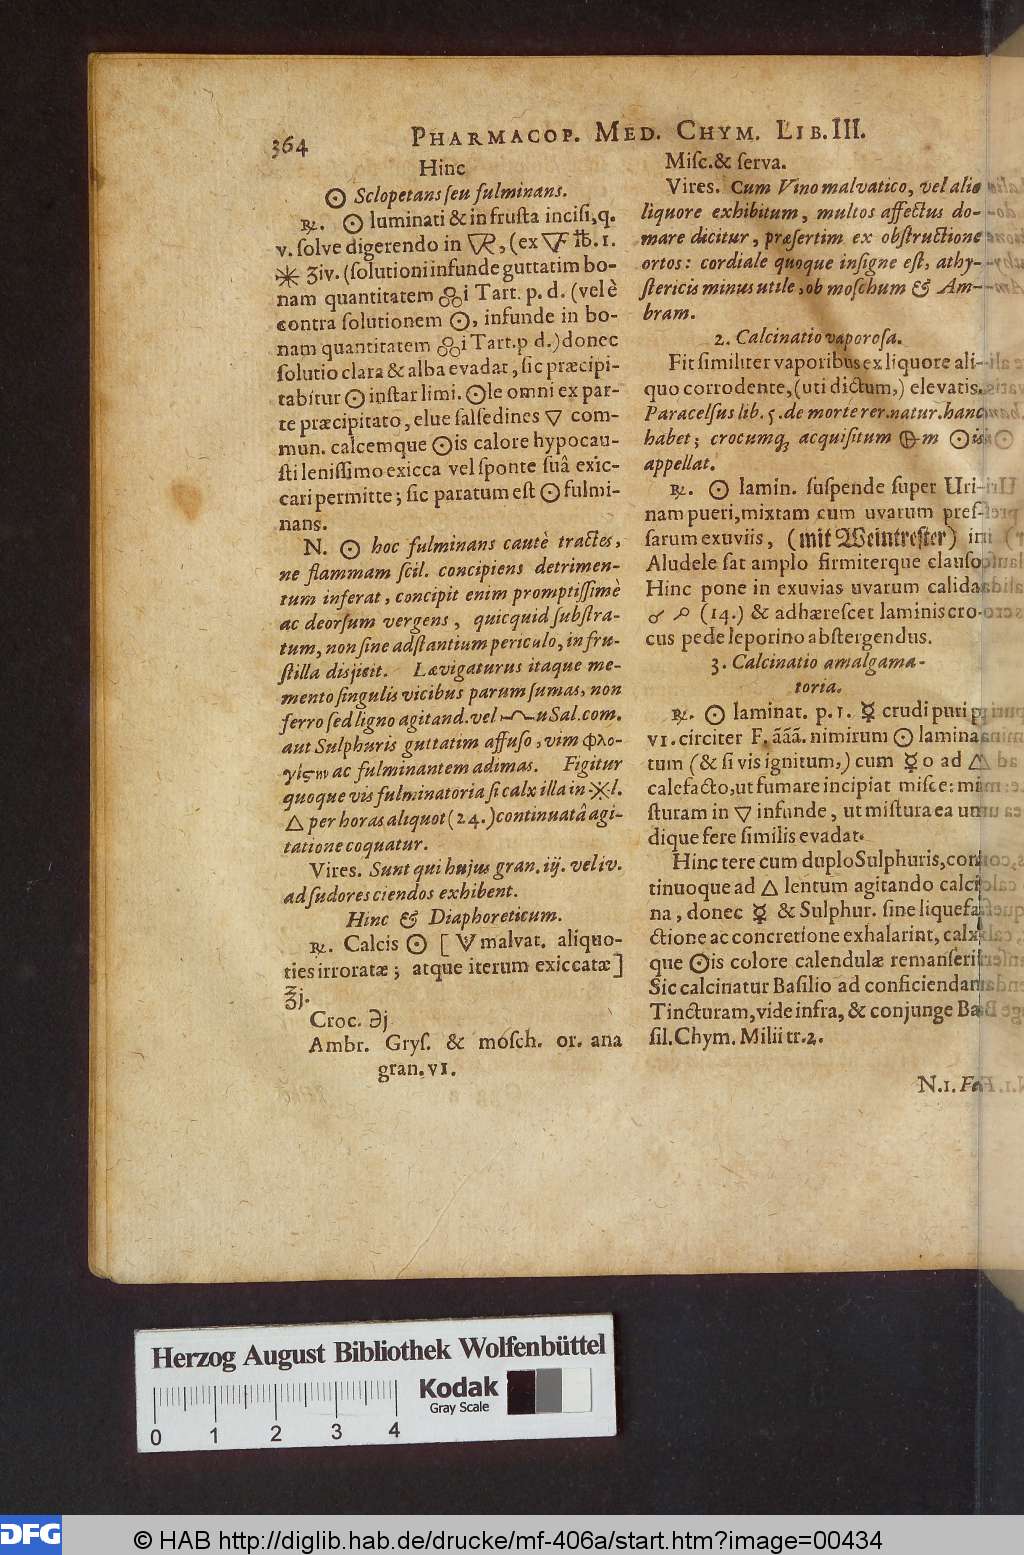 364 PHARMACOP. MED. CHYM. LIB. III.
Hinc
☉ Sclopetans ſeu fulminans.
℞. ☉ luminati & in fruſta inciſi, q.
v. ſolve digerendo in 🜆, (ex 🜅 ℔. 1.
🞶 ℥iv. (ſolutioni infunde guttatim bo-
nam quantitatem i Tart. p. d. (vel è
contra ſolutionem ☉, infunde in bo-
nam quantitatem i Tart. p d.) donec
ſolutio clara & alba evadat, ſic præcipi-
tabitur ☉ inſtar limi. ☉le omni ex par-
te præcipitato, elue ſalſedines 🜄 com-
mun. calcemque ☉is calore hypocau-
ſti leniſſimo exicca vel ſponte ſuâ exic-
cari permitte; ſic paratum eſt ☉ fulmi-
nans.
N. ☉ hoc fulminans cautè tractes,
ne flammam ſcil. concipiens detrimen-
tum inferat, concipit enim promptiſſimè
ac deorſum vergens, quicquid ſubſtra-
tum, non ſine adſtantium periculo, in fru-
ſtilla disjicit. Lævigaturus itaque me-
mento ſingulis vicibus parum ſumas, non
ferro ſed ligno agitand. vel u Sal. com.
aut Sulphuris guttatim affuſo, vim φλο-
γίςην ac fulminantem adimas. Figitur
quoque vis fulminatoria ſi calx illa in l.
🜂 per horas aliquot (24.) continuatâ agi-
tatione coquatur.
Vires. Sunt qui hujus gran. iij. vel iv.
ad ſudores ciendos exhibent.
Hinc & Diaphoreticum.
℞. Calcis ☉ [ malvat. aliquo-
ties irroratæ; atque iterum exiccatæ]
℥j.
Croc. ℈j
Ambr. Gryſ. & moſch. or. ana
gran. vi.
Miſc. & ſerva.
Vires. Cum Vino malvatico, vel alio
liquore exhibitum, multos affectus do-
mare dicitur, præſertim ex obſtructione
ortos: cordiale quoque inſigne eſt, athy-
ſtericis minus utile, ob moſchum & Am-
bram.
2. Calcinatio vaporoſa.
Fit ſimiliter vaporibus ex liquore ali-
quo corrodente, (uti dictum,) elevatis.
Paracelſus lib. 5. de morte rer. natur. hanc
habet; crocumq; acquiſitum m ☉is
appellat.
℞. ☉ lamin. ſuſpende ſuper Uri-
nam pueri, mixtam cum uvarum preſ-
ſarum exuviis, (mit Weintreſter) in
Aludele ſat amplo firmiterque clauſo
Hinc pone in exuvias uvarum calidas
(14.) & adhæreſcet laminis cro-
cus pede leporino abſtergendus.
3. Calcinatio amalgama-
toria.
℞. ☉ laminat. p. 1. ☿ crudi puri p.
vi. circiter F. ãããã. nimirum ☉ lamina-
tum (& ſi vis ignitum,) cum ☿o ad 🜂
calefacto, ut fumare incipiat miſce: mi-
ſturam in 🜄 infunde, ut miſtura ea un-
dique fere ſimilis evadat.
Hinc tere cum duplo Sulphuris, con-
tinuoque ad 🜂 lentum agitando calci-
na, donec ☿ & Sulphur. ſine liquefa-
ctione ac concretione exhalarint, calx-
que ☉is colore calendulæ remanſerit
Sic calcinatur Baſilio ad conficiendam
Tincturam, vide infra, & conjunge Ba-
ſil. Chym. Milii tr. 2.
N. 1. Fa
Herzog August Bibliothek Wolfenbüttel
Kodak
Gray Scale
0 1 2 3 4
DFG
© HAB http://diglib.hab.de/drucke/mf-406a/start.htm?image=00434